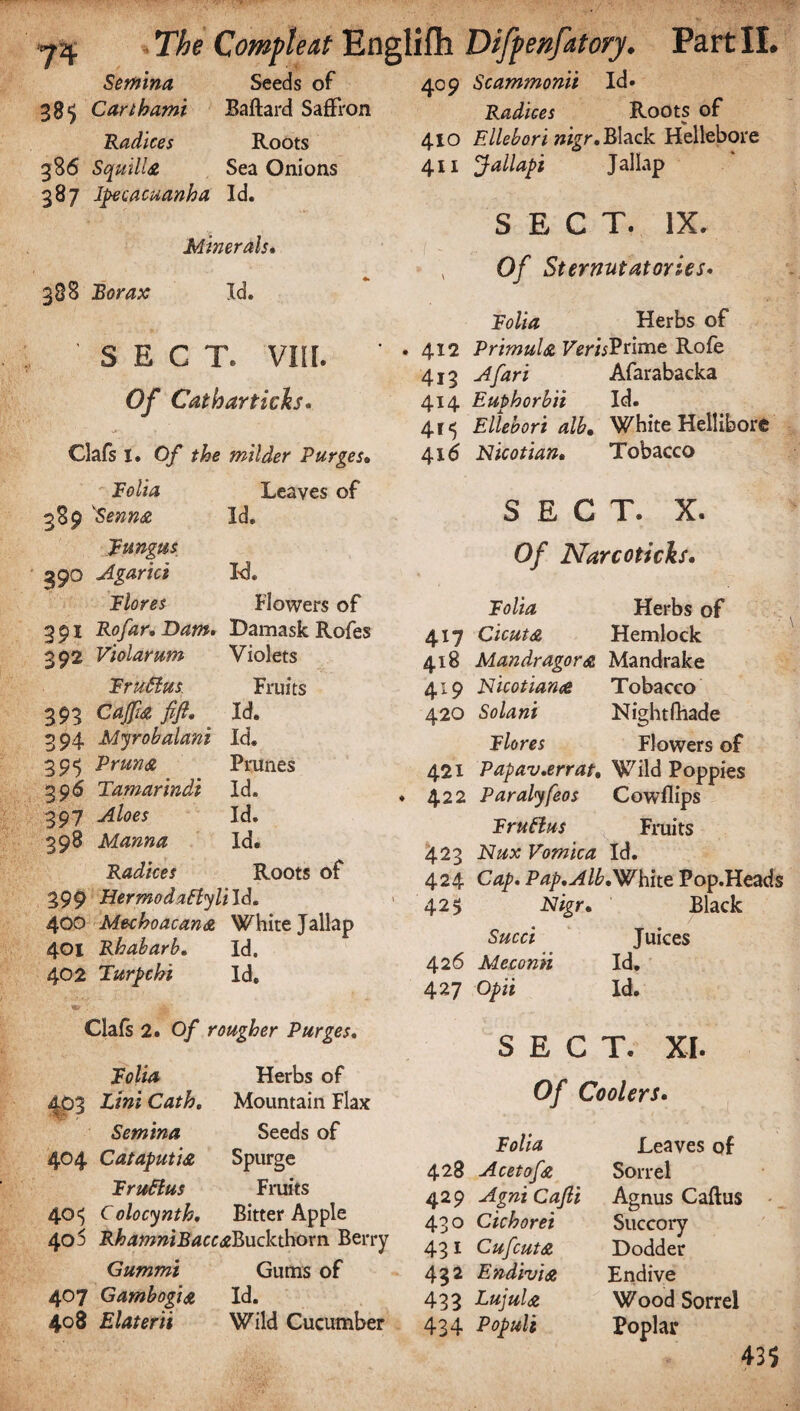 74 The Compleat Engliſh Diſpenſatory. Part II.
Semina Seeds of
385 Carthami Baſtard Saffron
Radices Roots
386 Squillæ Sea Onions
387 Ipecacuanha Id.
Minerals.
388 Borax Id.
SECT. VIII.
Of Catharticks.
Claſs 1. Of the milder Purges.
Folia Leaves of
389 Sennæ Id.
Fungus
390 Agarici Id.
Flores Flowers of
391 Roſar. Dam. Damask Roſes
392 Violarum Violets
Fructus Fruits
393 Caſſiæ fiſt. Id.
394 Myrobalani Id.
395 Prunæ Prunes
396 Tamarindi Id.
397 Aloes Id.
398 Manna Id.
Radices Roots of
399 Hermodactyli Id.
400 Mechoacanæ White Jallap
401 Rhabarb. Id.
402 Turpehi Id.
Claſs 2. Of rougher Purges.
Folia Herbs of
403 Lini Cath. Mountain Flax
Semina Seeds of
404 Cataputiæ Spurge
Fructus Fruits
405 Colocynth. Bitter Apple
405 Rhamni Baccæ Buckthorn Berry
Gummi Gums of
407 Gambogiæ Id.
408 Elaterii Wild Cucumber
409 Scammonii Id.
Radices Roots of
410 Ellebori nigr. Black Hellebore
411 Jallapi Jallap
SECT. IX.
Of Sternutatories.
Folia Herbs of
412 Primulæ Veris Prime Roſe
413 Aſari Aſarabacka
414 Euphorbii Id.
415 Ellebori alb. White Hellibore
416 Nicotian. Tobacco
SECT. X.
Of Narcoticks.
Folia Herbs of
417 Cicutæ Hemlock
418 Mandragoræ Mandrake
419 Nicotianæ Tobacco
420 Solani Nightſhade
Flores Flowers of
421 Papav. errat. Wild Poppies
422 Paralyſeos Cowſlips
Fructus Fruits
423 Nux Vomica Id.
424 Cap. Pap. Alb. White Pop. Heads
425 Nigr. Black
Succi Juices
426 Meconii Id.
427 Opii Id.
SECT. XI.
Of Coolers.
Folia Leaves of
428 Acetoſæ Sorrel
429 Agni Caſti Agnus Caſtus
430 Cichorei Succory
431 Cuſcutæ Dodder
432 Endiviæ Endive
433 Lujulæ Wood Sorrel
434 Populi Poplar
435